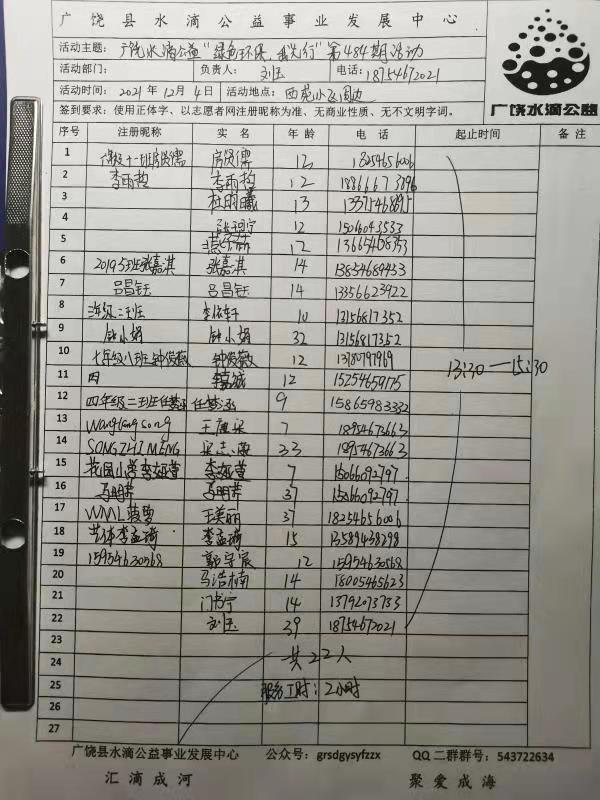 广饶县水滴公益事业发展中心
活动主题：广饶水滴公益"绿色环保，我先行"第484期活动
活动部门： 负责人：刘玉 电话：18754672021
活动时间：2021年12月4日 活动地点：西苑小区周边
签到要求：使用正体字、以志愿者网注册昵称为准、无商业性质、无不文明字词。
广饶水滴公益
序号 注册昵称 实名 年龄 电话 起止时间 备注
1 十一班房贤儒 房贤儒 12
2 李雨哲 李雨哲 12
3 杜雨曦 13
4 12 15016043533
5 12
6 2019.5班张嘉淇 张嘉淇 14 13854689433
7 吕昌钰 吕昌钰 14 13356623922
8 二班 10 13156817352
9 钟小娟 钟小娟 32 13156817352
10 七年级八班钟俊薇 钟俊薇 12 13780797969
13:30—15:30
11 四 12 15254659175
12 四年级二班任梦涵 任梦涵 9 15865983332
13 7 18954673663
14 SONGZHIMENG 宋志 33 18954673663
15 花园小学李娅萱 李娅萱 7 15066092797
16 马明芹 马明芹 37 15066092797
17 WML 王美丽 37 18254656006
18 李孟琦 15 13589438298
19 15954630568 郭宇宸 12 15954630568
20 马浩楠 14 18005465623
21 门书宁 14 13792073733
22 刘玉 39 18754672021
23
24 共22人
25 服务工时：2小时
26
27
广饶县水滴公益事业发展中心 公众号：grsdgysyfzzx QQ二群群号：543722634
汇滴成河 聚爱成海